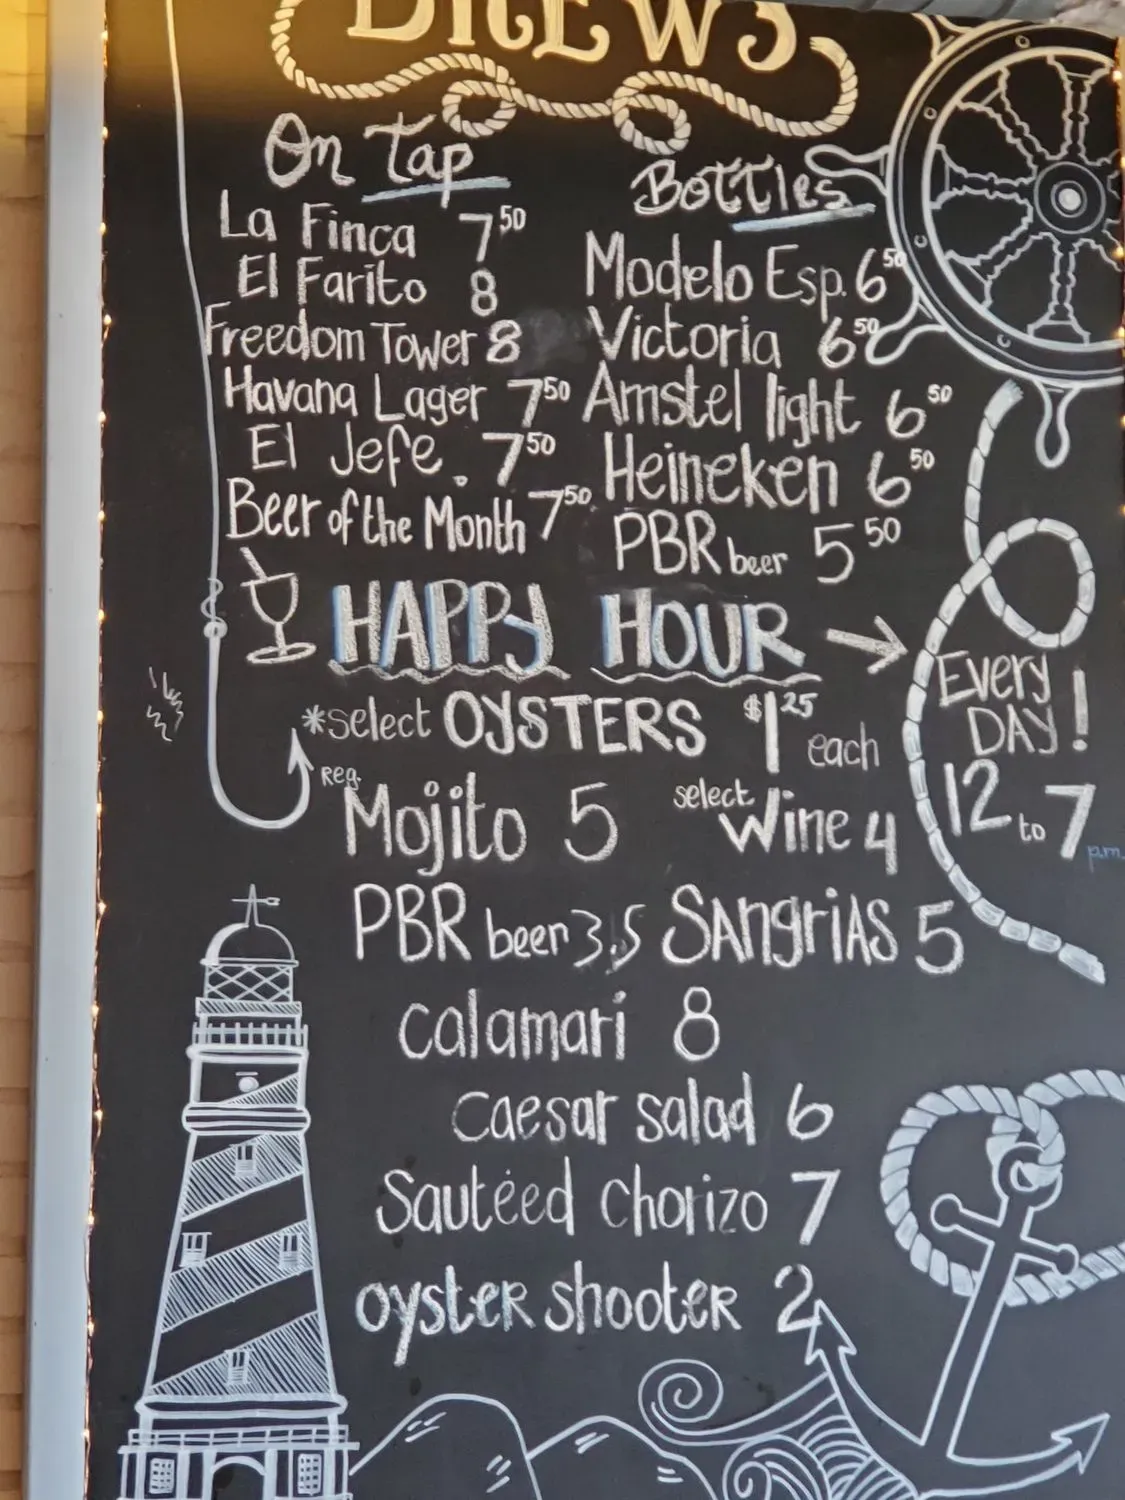 BREWS
On Tap
La Finca 7.50
El Farito 8
Freedom Tower 8
Havana Lager 7.50
El Jefe. 7.50
Beer of the Month 7.50
Bottles
Modelo Esp. 6.50
Victoria 6.50
Amstel light 6.50
Heineken 6.50
PBR beer 5.50
HAPPY HOUR →
EVERY
DAY!
12 to 7
p.m.
*select OYSTERS $1.25 each
REG. Mojito 5 select Wine 4
PBR beer 3.5 SANgriAS 5
calamari 8
caesar salad 6
Sautéed chorizo 7
oyster shooter 2